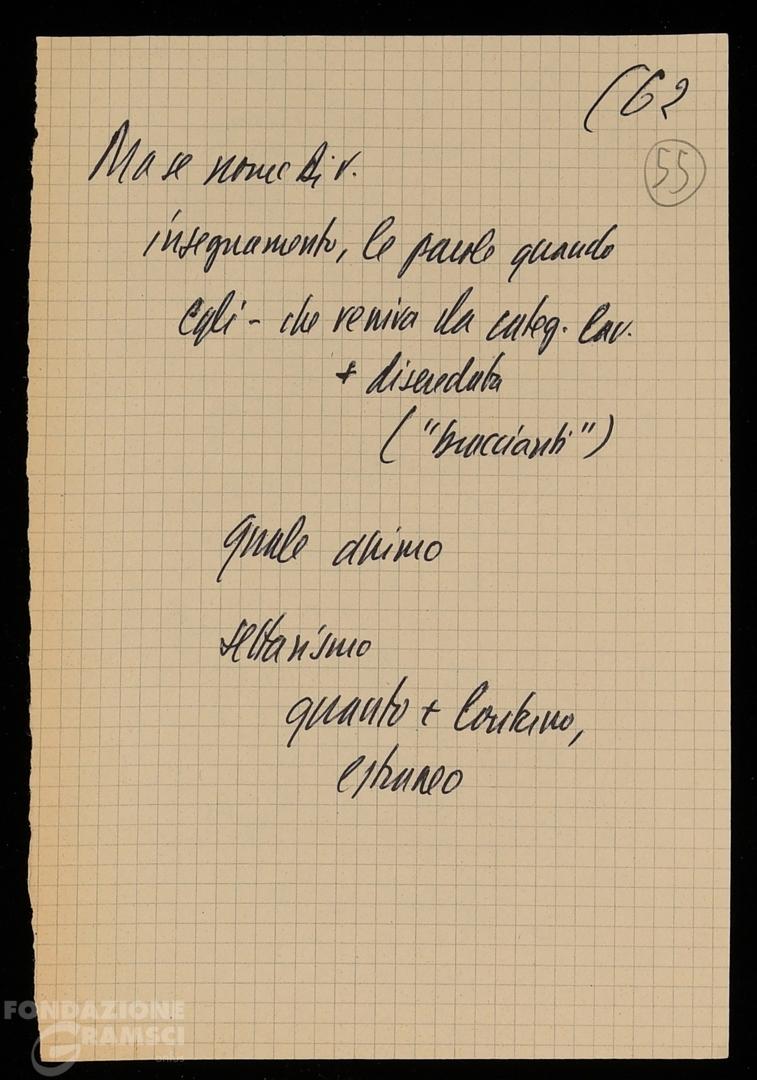 (62
55
Ma se nome Di V.
insegnamento, le parole quando
egli - che veniva da categ. lav.
+ diseredata
("braccianti")
quale animo
settarismo
quanto + lontano,
estraneo
FONDAZIONE
GRAMSCI
onlus